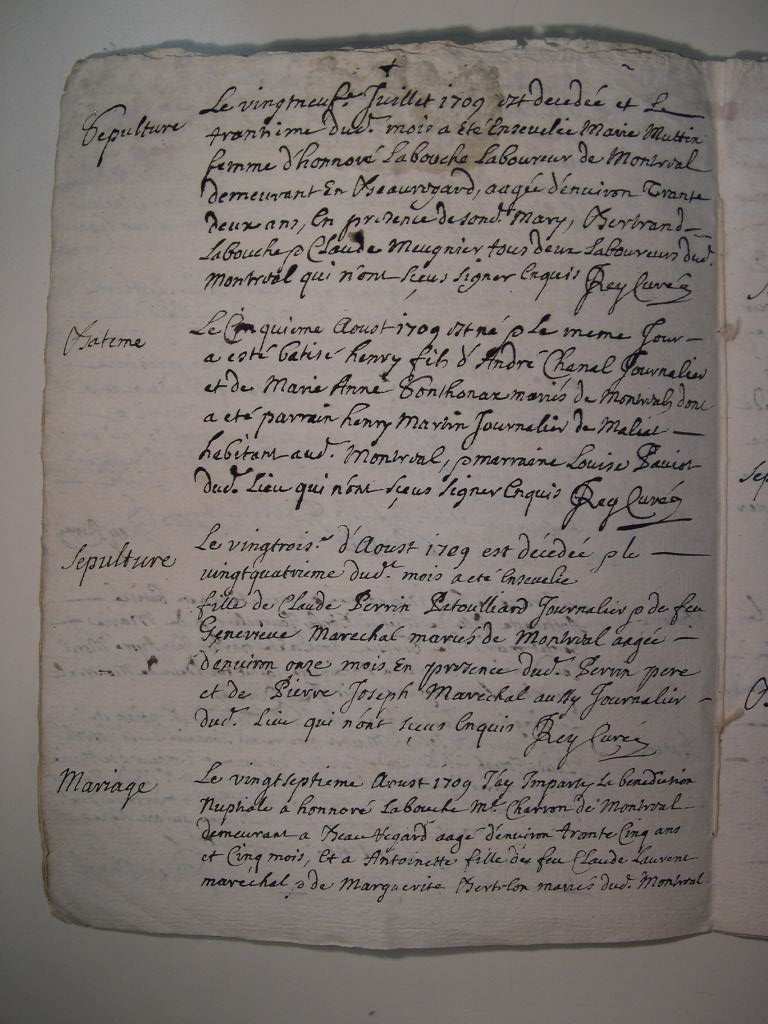 Sepulture
Le vingtneuf.e Juillet 1709 est decedée et Le
trantieme dud.t mois a eté Ensevelie Marie Muttin
femme d'honnoré Labouche Laboureur de Montrval
demeurant En Beauregard, aagée d'environ Trante
deux ans, En presence de sond.t Mary, Bertrand
Labouche & Claude Meugnier tous deux Laboureurs dud.t
Montrval qui n'ont sçeus signer Enquis Rey Curé
Bateme
Le Cinquieme Aoust 1709 est né & Le meme Jour
a esté batisé henry fils d'André Chanel Journalier
et de Marie Anne Tonthonax mariés de Montrval, dont
a eté parrain henry Martin Journalier de
habitant aud.t Montrval, & marraine Louise
dud.t Lieu qui n'ont sçeus signer Enquis Rey Curé
Sepulture
Le vingtrois.e d'Aoust 1709 est décédée & le
vingtquatrieme dud.t mois a eté Ensevelie
fille de Claude Perrin Patoulliard Journalier & de feu
Genevieve Marechal mariés de Montrval aagée
d'environ onze mois En presence dud.t Perrin pere
et de Pierre Joseph Maréchal aussy Journalier
dud.t Lieu qui n'ont sçeus Enquis Rey Curé
Mariage
Le vingtseptieme Aoust 1709 J'ay Imparty La benediction
Nuptiale a honnoré Labouche M.e Charron de Montrval
demeurant a Beau Regard aagé d'environ trante Cinq ans
et Cinq mois, Et a Antoinette fille de feu Claude Laurent
maréchal & de Marguerite Bertelon mariés dud.t Montrval